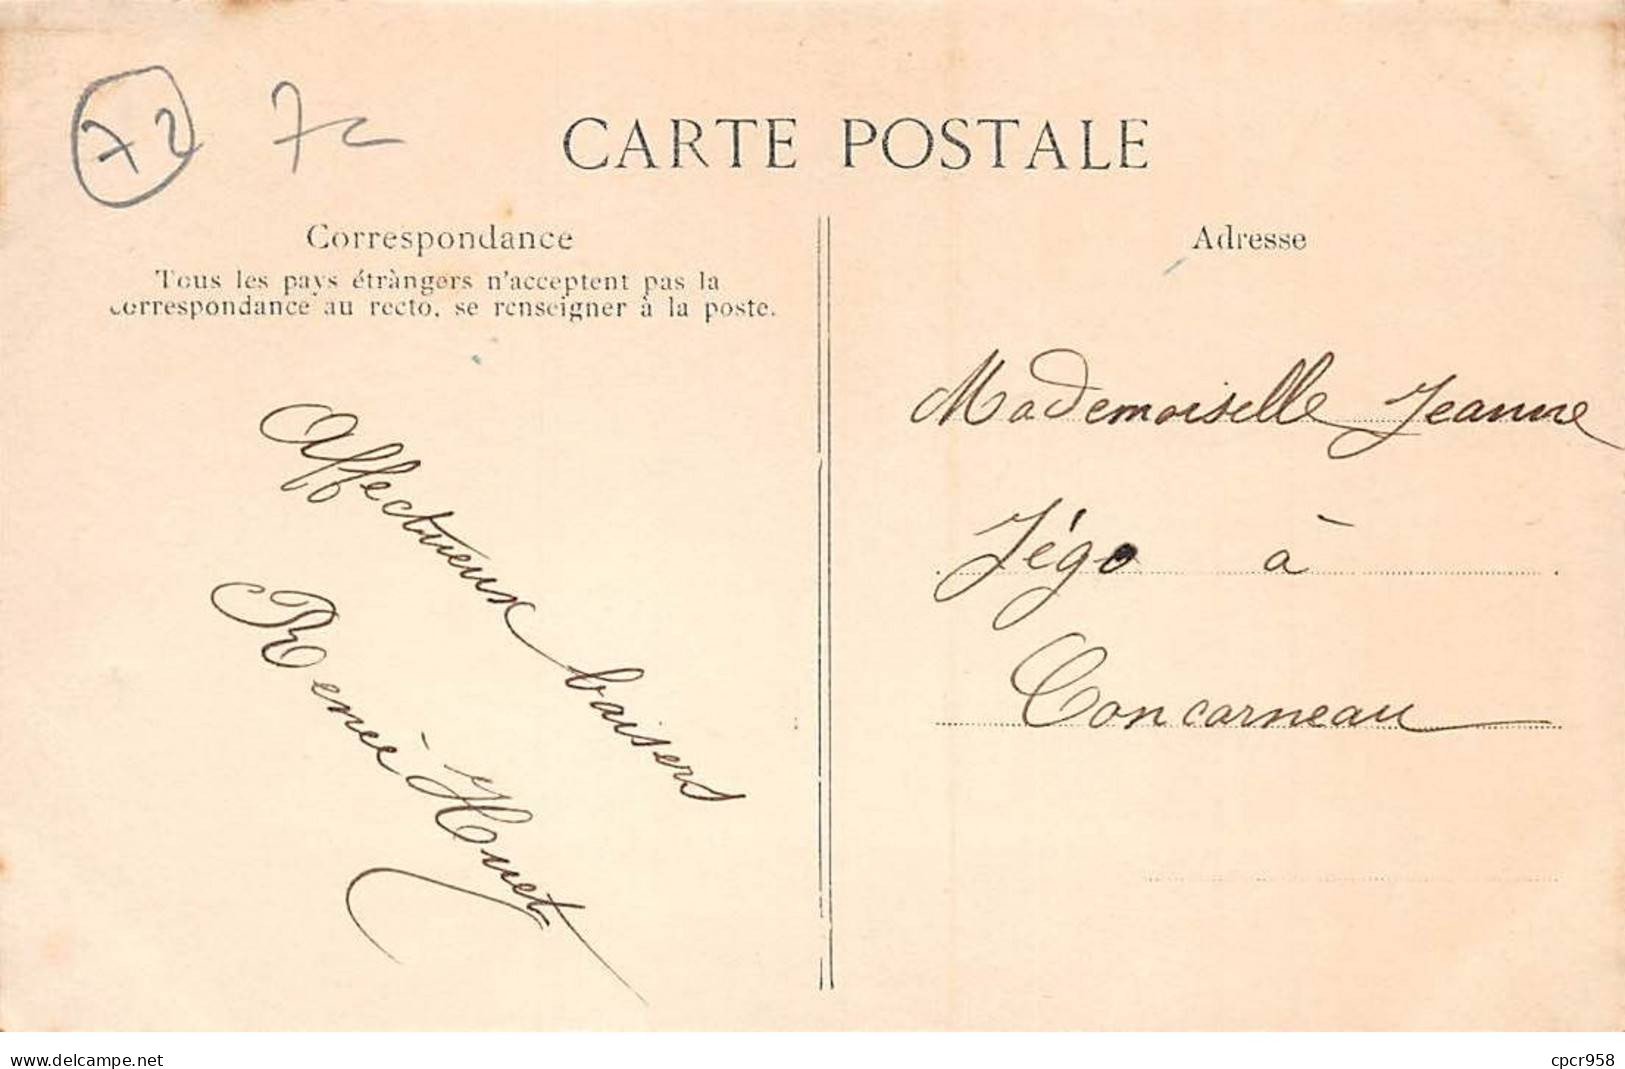 72 7c
CARTE POSTALE
Correspondance
Tous les pays étrangers n'acceptent pas la
correspondance au recto, se renseigner à la poste.
Affectueux baisers
Renée Huet
Adresse
Mademoiselle Jeanne
Jégo à
Concarneau
www.delcampe.net
cpcr958